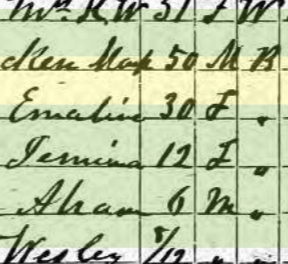 Mrs H W 31 F W
Max 50 M B
Emaline 30 F "
Jemima 12 F "
Abram 6 M "
Wesley 8/12 " "